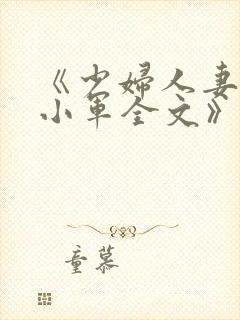 《少婦人妻
小軍全文》
童慕